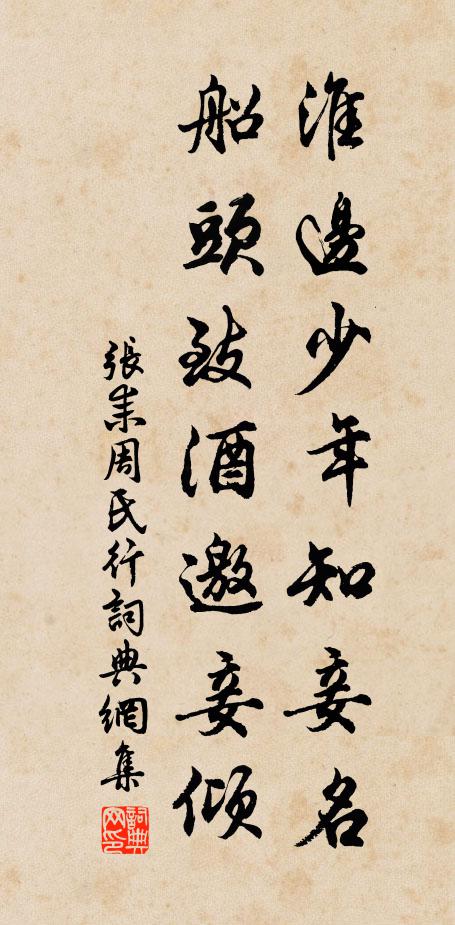 淮邊少年知妾名
船頭致酒邀妾傾
張耒周氏行詞典網集
詞典网印